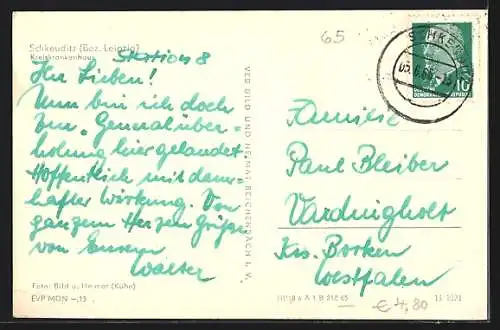 65
Schkeuditz (Bez. Leipzig)
Kreiskrankenhaus Station 8
Ihr Lieben!
Nun bin ich doch
zur "Generalüber-
holung hier gelandet
Hoffentlich mit dauer-
hafter Wirkung. Von
ganzem Herzen Grüße
von Eurem
Walter
Foto: Bild u. Heimat (Kühn)
EVP MDN -,15
VEB BILD UND HEIMAT REICHENBACH I. V.
10
Familie
Paul Bleiber
Vardingholt
Krs. Borken
Westfalen
€ 4,80